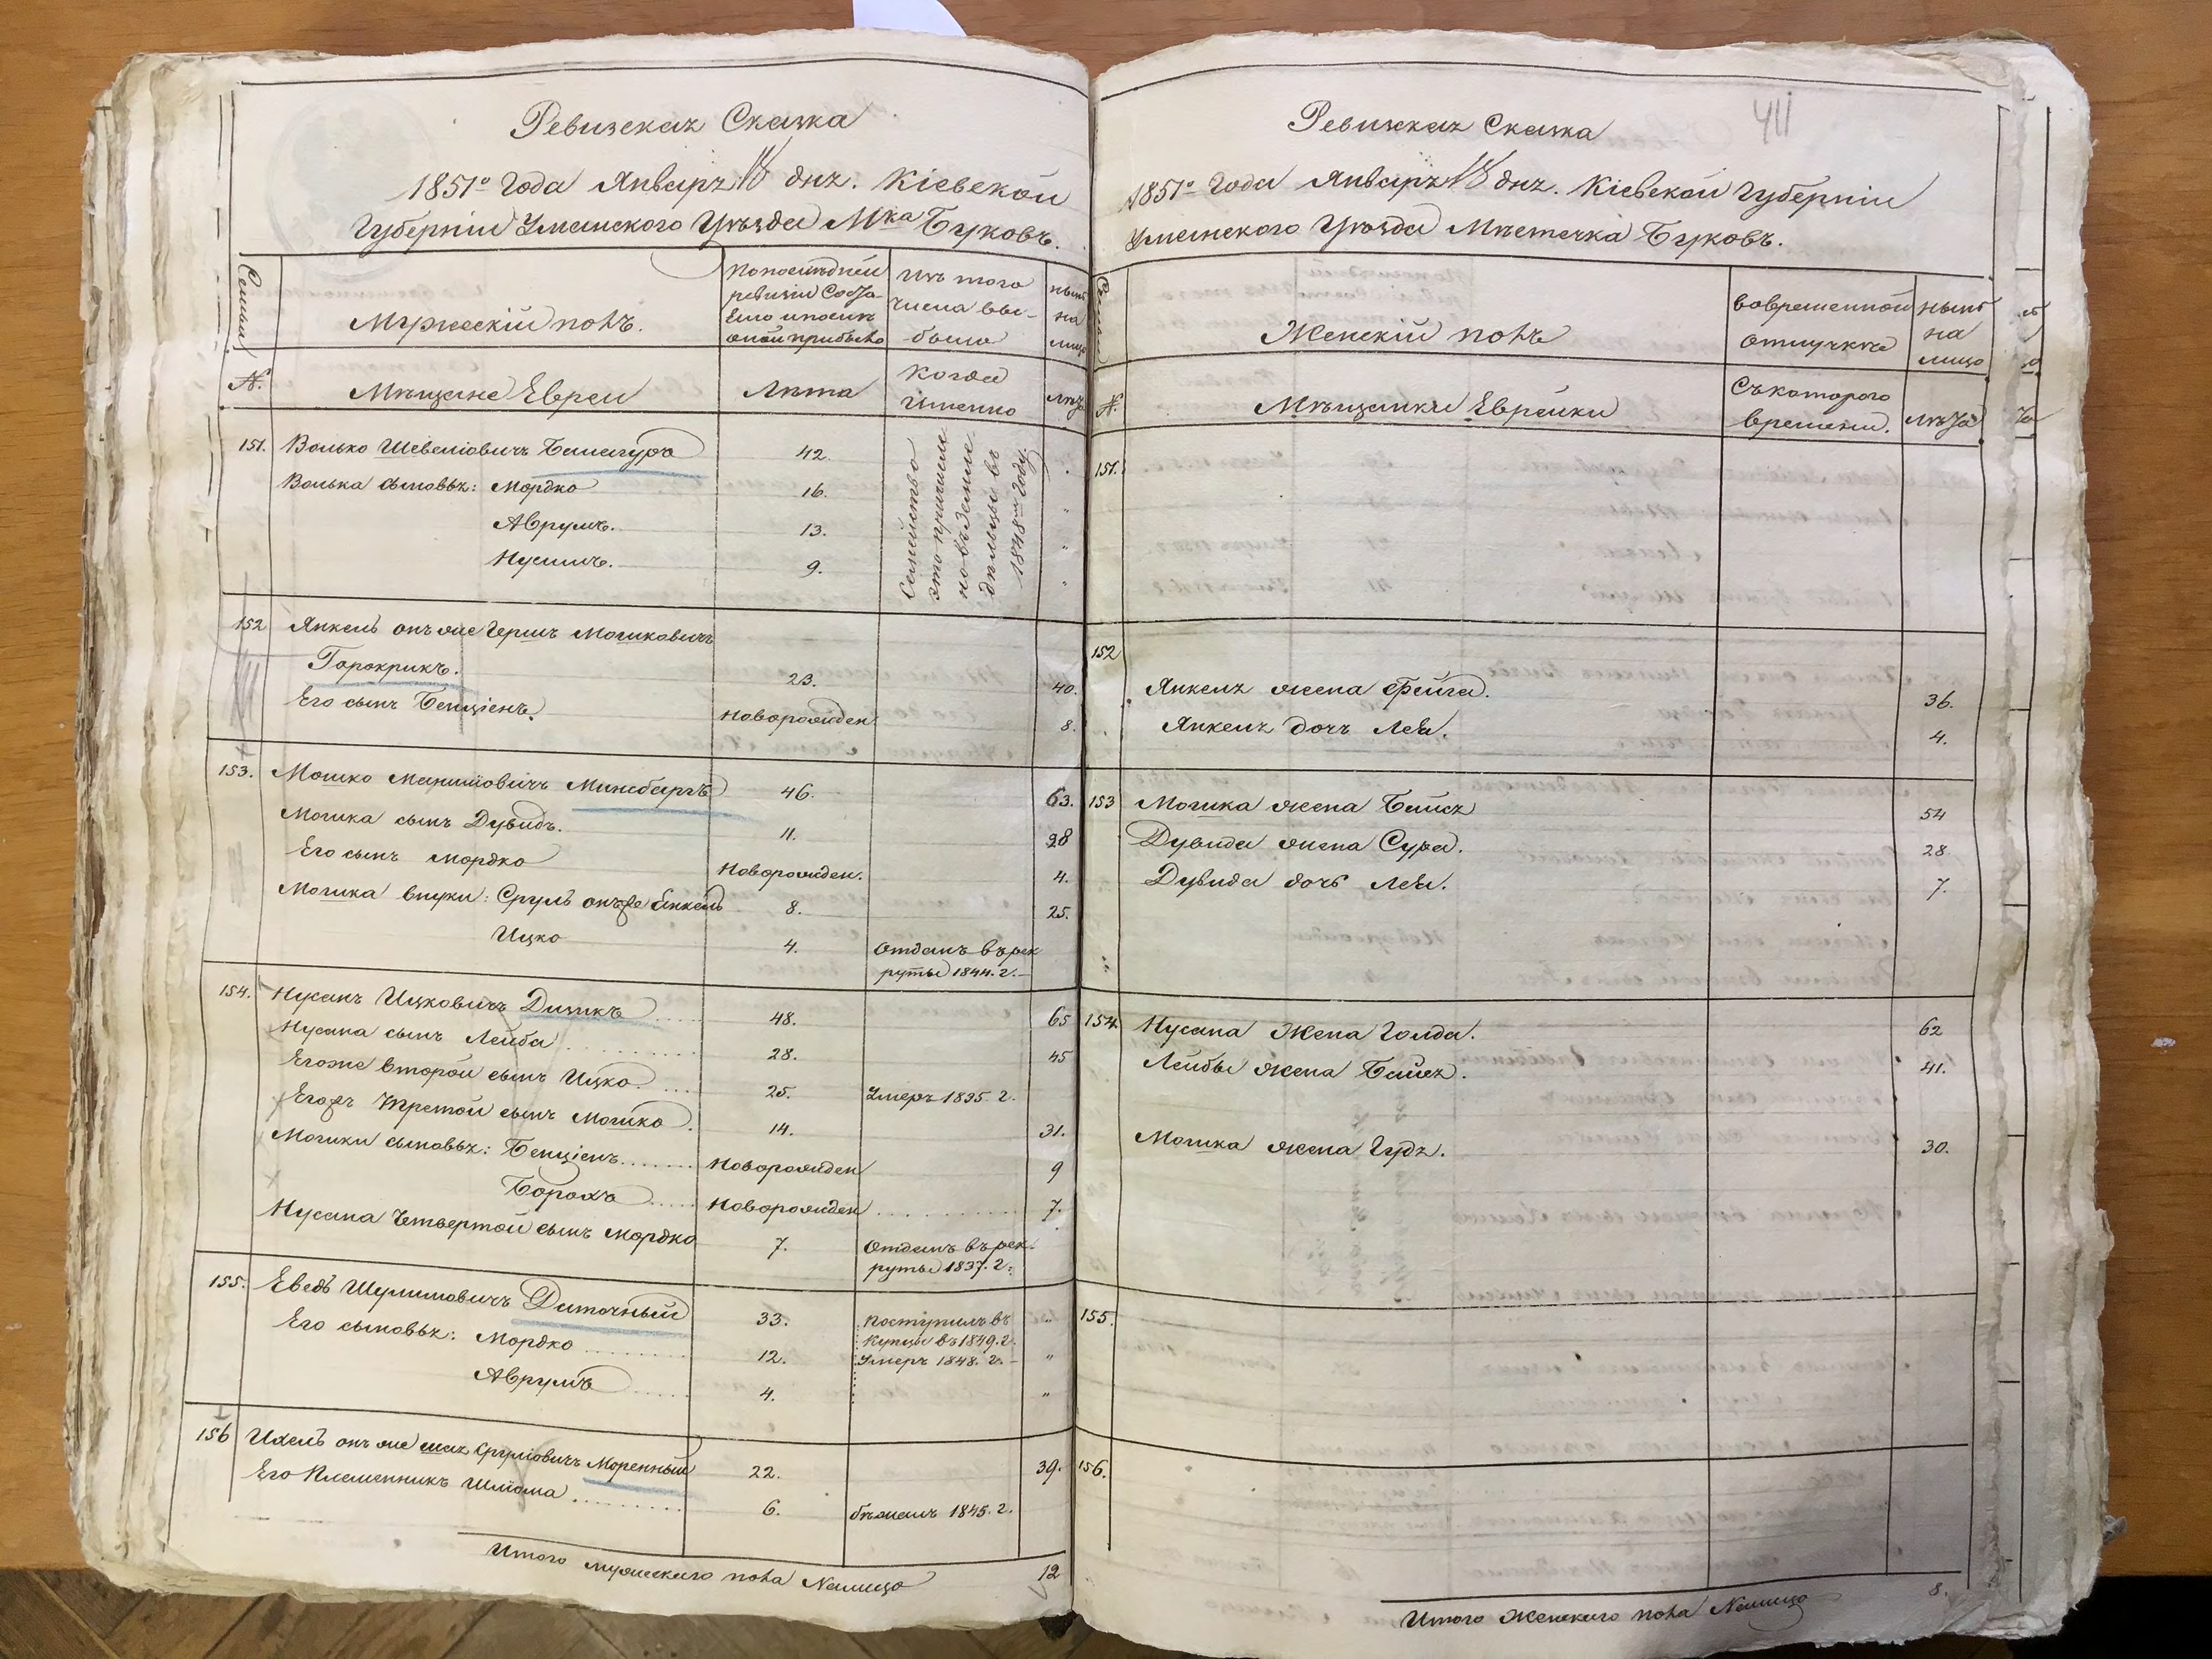 Ревизская Сказка
1851го Года Января 18 дня. Кіевской
Губерніи Уманского Уѣзда Мка Буковъ.
Семьи
Мужескій полъ.
По последней
ревизіи Состо-
яло и после
оной прибыло
Изъ того
числа вы-
было
ныне
на
лицо
№.
Мѣщане Евреи
Лѣта
Когда
Именно
Лѣта
151. Волько Шевеліовичъ Банагура 42.
Волька сыновья: Мордко 16.
Аврумъ. 13.
Нусинъ. 9.
Семейство
это причисле
но въ Земле
дѣльцы въ
1848мъ Году.
152 Янкель онъ же Гершъ Мошковичъ
Горокрикъ. 23. 40.
Его сынъ Бенціенъ. Новорожден. 8.
153. Мошко Манишовичъ Минсбергъ 46. 63.
Мошка сынъ Дувидъ. 11. 28
Его сынъ Мордко Новорожден. 4.
Мошка внуки: Сруль онъ же Янкель 8. 25.
Ицко 4. Отданъ въ рек
руты 1844. г.
154. Нусанъ Ицковичъ Дицикъ 48. 65
Нусана сынъ Лейба 28. 45
Егоже второй сынъ Ицко. 25. Умеръ 1835. г.
Егожъ Третой сынъ Мошко. 14. 31.
Мошки сыновья: Бенціенъ Новорожден 9
Борохъ Новорожден 7.
Нусана Четвертой сынъ Мордко 7. Отданъ въ рек
руты 1837. г.
155. Еведь Шулимовичъ Даточный 33. Поступилъ въ
Купцы въ 1849. г.
Его сыновья: Мордко 12. Умеръ 1848. г. "
Аврумъ 4. "
156 Ихель онъ же Сруліовичъ Моренный 22. 39.
Его Племянникъ Шлиома 6. бѣжалъ 1845. г.
Итого мужеского пола Налицо 12
Ревизская Сказка
411
1851го Года Января 18 дня. Кіевской Губерніи
Уманского Уѣзда Мѣстечка Буковъ.
Семьи
Женскій полъ
Во временной
отлучке
ныне
на
лицо
№.
Мѣщанки Еврейки
Съ которого
времени.
Лѣта
151.
152
Янкеля жена Фейга. 36.
Янкеля дочь Лея. 4.
153 Мошка жена Бася 54
Дувида жена Сура. 28.
Дувида дочь Лея. 7.
154. Нусана Жена Голда. 62
Лейбы жена Бася. 41.
Мошка жена Гудя. 30.
155.
156.
Итого Женского пола Налицо 8.